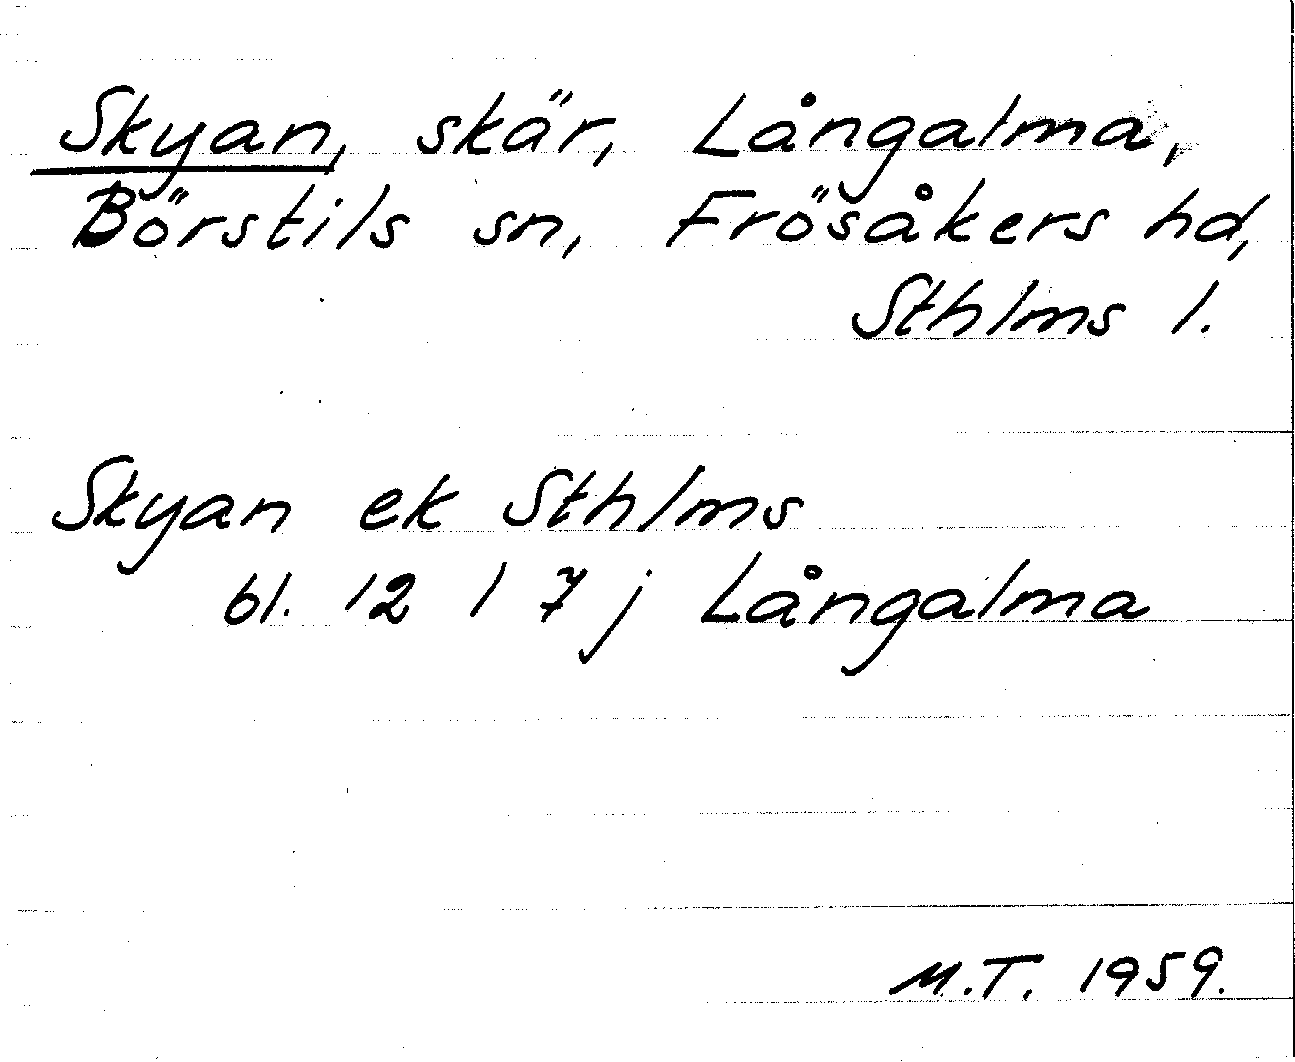 Skyan, skär, Långalma,
Börstils sn, Frösåkers hd,
Sthlms l.
Skyan ek Sthlms
bl. 12 l 7 j Långalma
M.T. 1959.